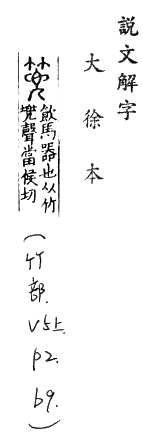 説文解字
大徐本
篼
飲馬器也从竹
兠聲當侯切
(竹部. V5上. P2. b9.)